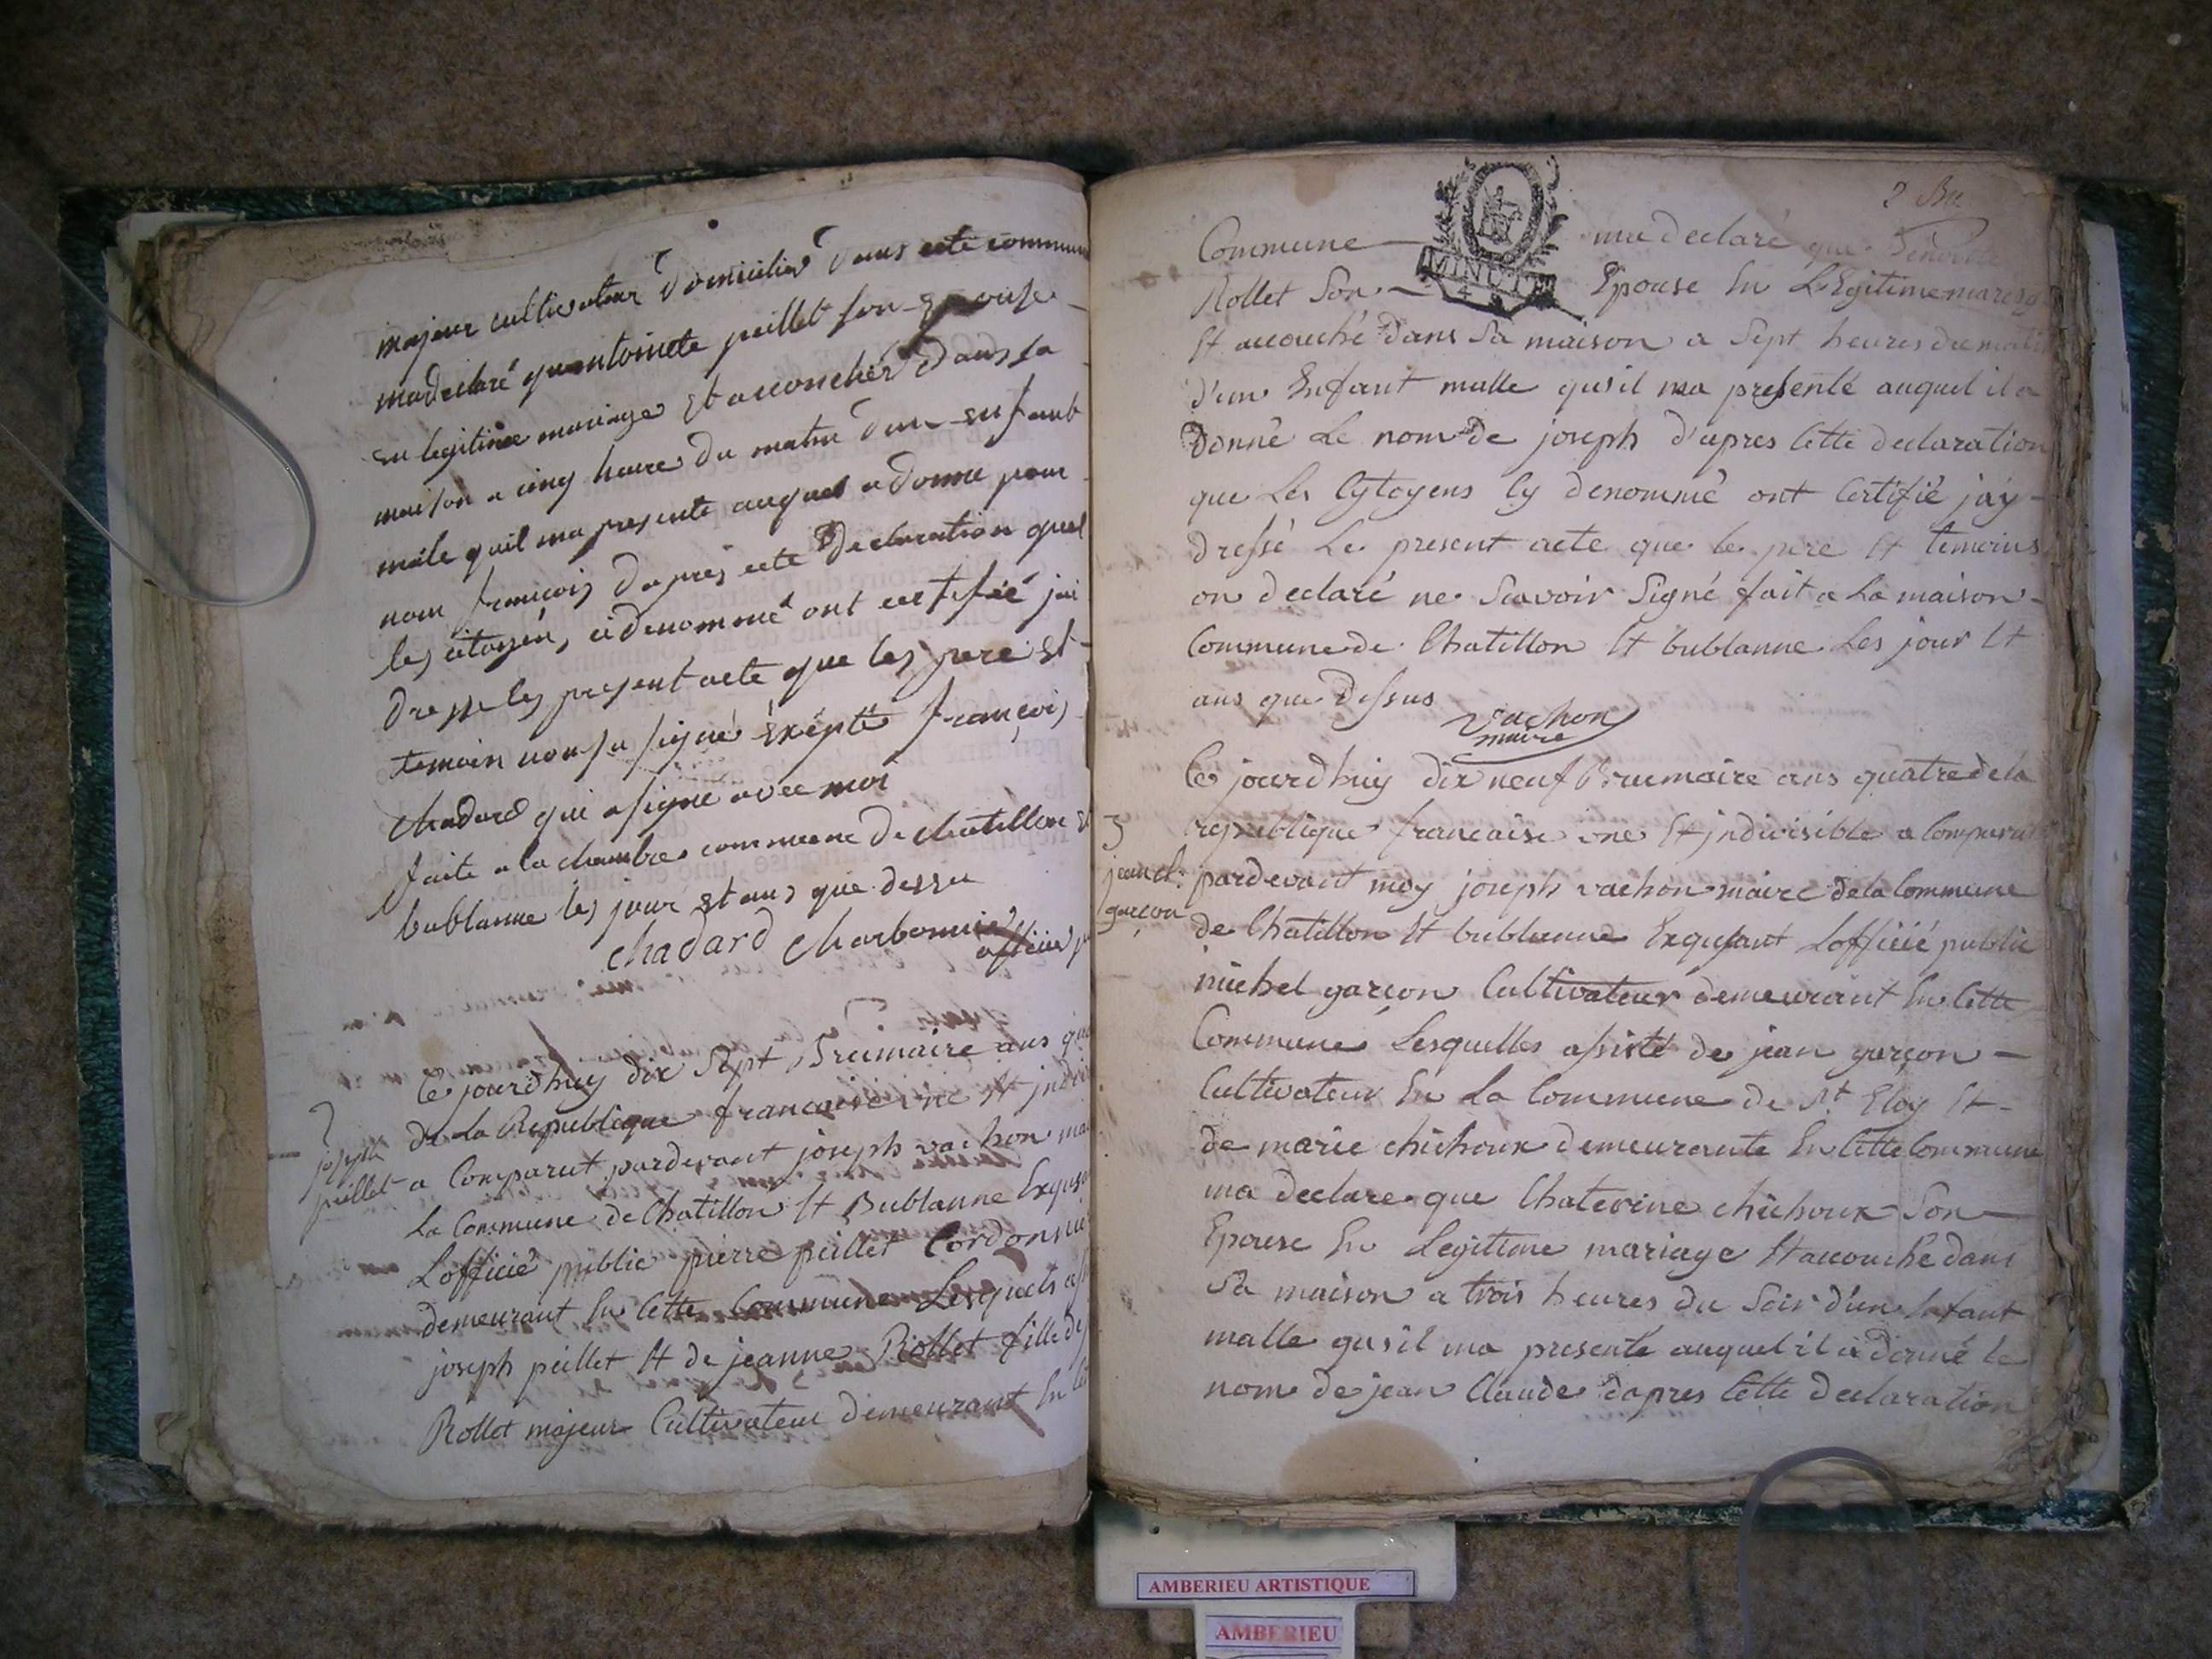 majeur cultivateur domicilié dans cete commun
madeclaré quantoinete peillet son epouse
en legitime mariage et accouchér dans sa
maison a cinq heure du matin dun enfant
mâle quil ma presenté auquel a donné pour
nom françois daprés cete declaration quel
les citoyen ci denommé ont certifié jai
dressé les present acte que les pere et
temoin non su signé éxépté françois
chadard qui a signé avec moi
faite a la chambre commune de chatillon et
bublanne les jour et ans que dessu
chadard charbonnié
officié p
Ce jourdhuy dix Sept Brumaire ans qua
2
joseph
peillet
de La Republique francaise une Et indivi
a Comparut pardevant joseph vachon ma
La Commune de Chatillon Et Bublanne Exqusa
Lofficié public pierre peillet Cordonnie
demeurant En Cette Commune Lesquels as
joseph peillet Et de jeanne Rollet fille de
Rollet majeur Cultivateur demeurant En
2 Bu
Commune ma declaré que
Rollet Son Epouse En LEgitime mariag
Et accouché dans Sa maison a Sept heures du mati
d'un Enfant malle qusil ma presenté auquel il a
Donné Le nom de joseph d'apres Cette declaration
que Les Cytoyens Cy denommé ont Certifié jay
dressé Le present acte que le pere Et temoins
on declaré ne Scavoir Signé fait a La maison
Commune de Chatillon Et bublanne Les jour Et
ans que Dessus
vachon
maire
Ce jourdhuy dix neuf Brumaire ans quatre dela
3
jean cl:
garçon
republique francaise une Et jndivisible a Comparut
pardevant moy joseph vachon maire dela Commune
de Chatillon Et bublanne Exqusant Lofficié public
michel garçon Cultivateur demeurant En Cette
Commune Lesquelles assisté de jean garçon
Cultivateur En La Commune de St Eloy Et
de marie chichoux demeurante En Cette Commune
ma declare que Chaterine chichoux Son
Epouse En Legitime mariage Et accouché dans
Sa maison a trois heures du Soir d'un Enfant
malle qusil ma presenté auquel il a donné le
nom de jean Claude dapres Cette declaration
MINUTE
4
AMBERIEU ARTISTIQUE
AMBERIEU